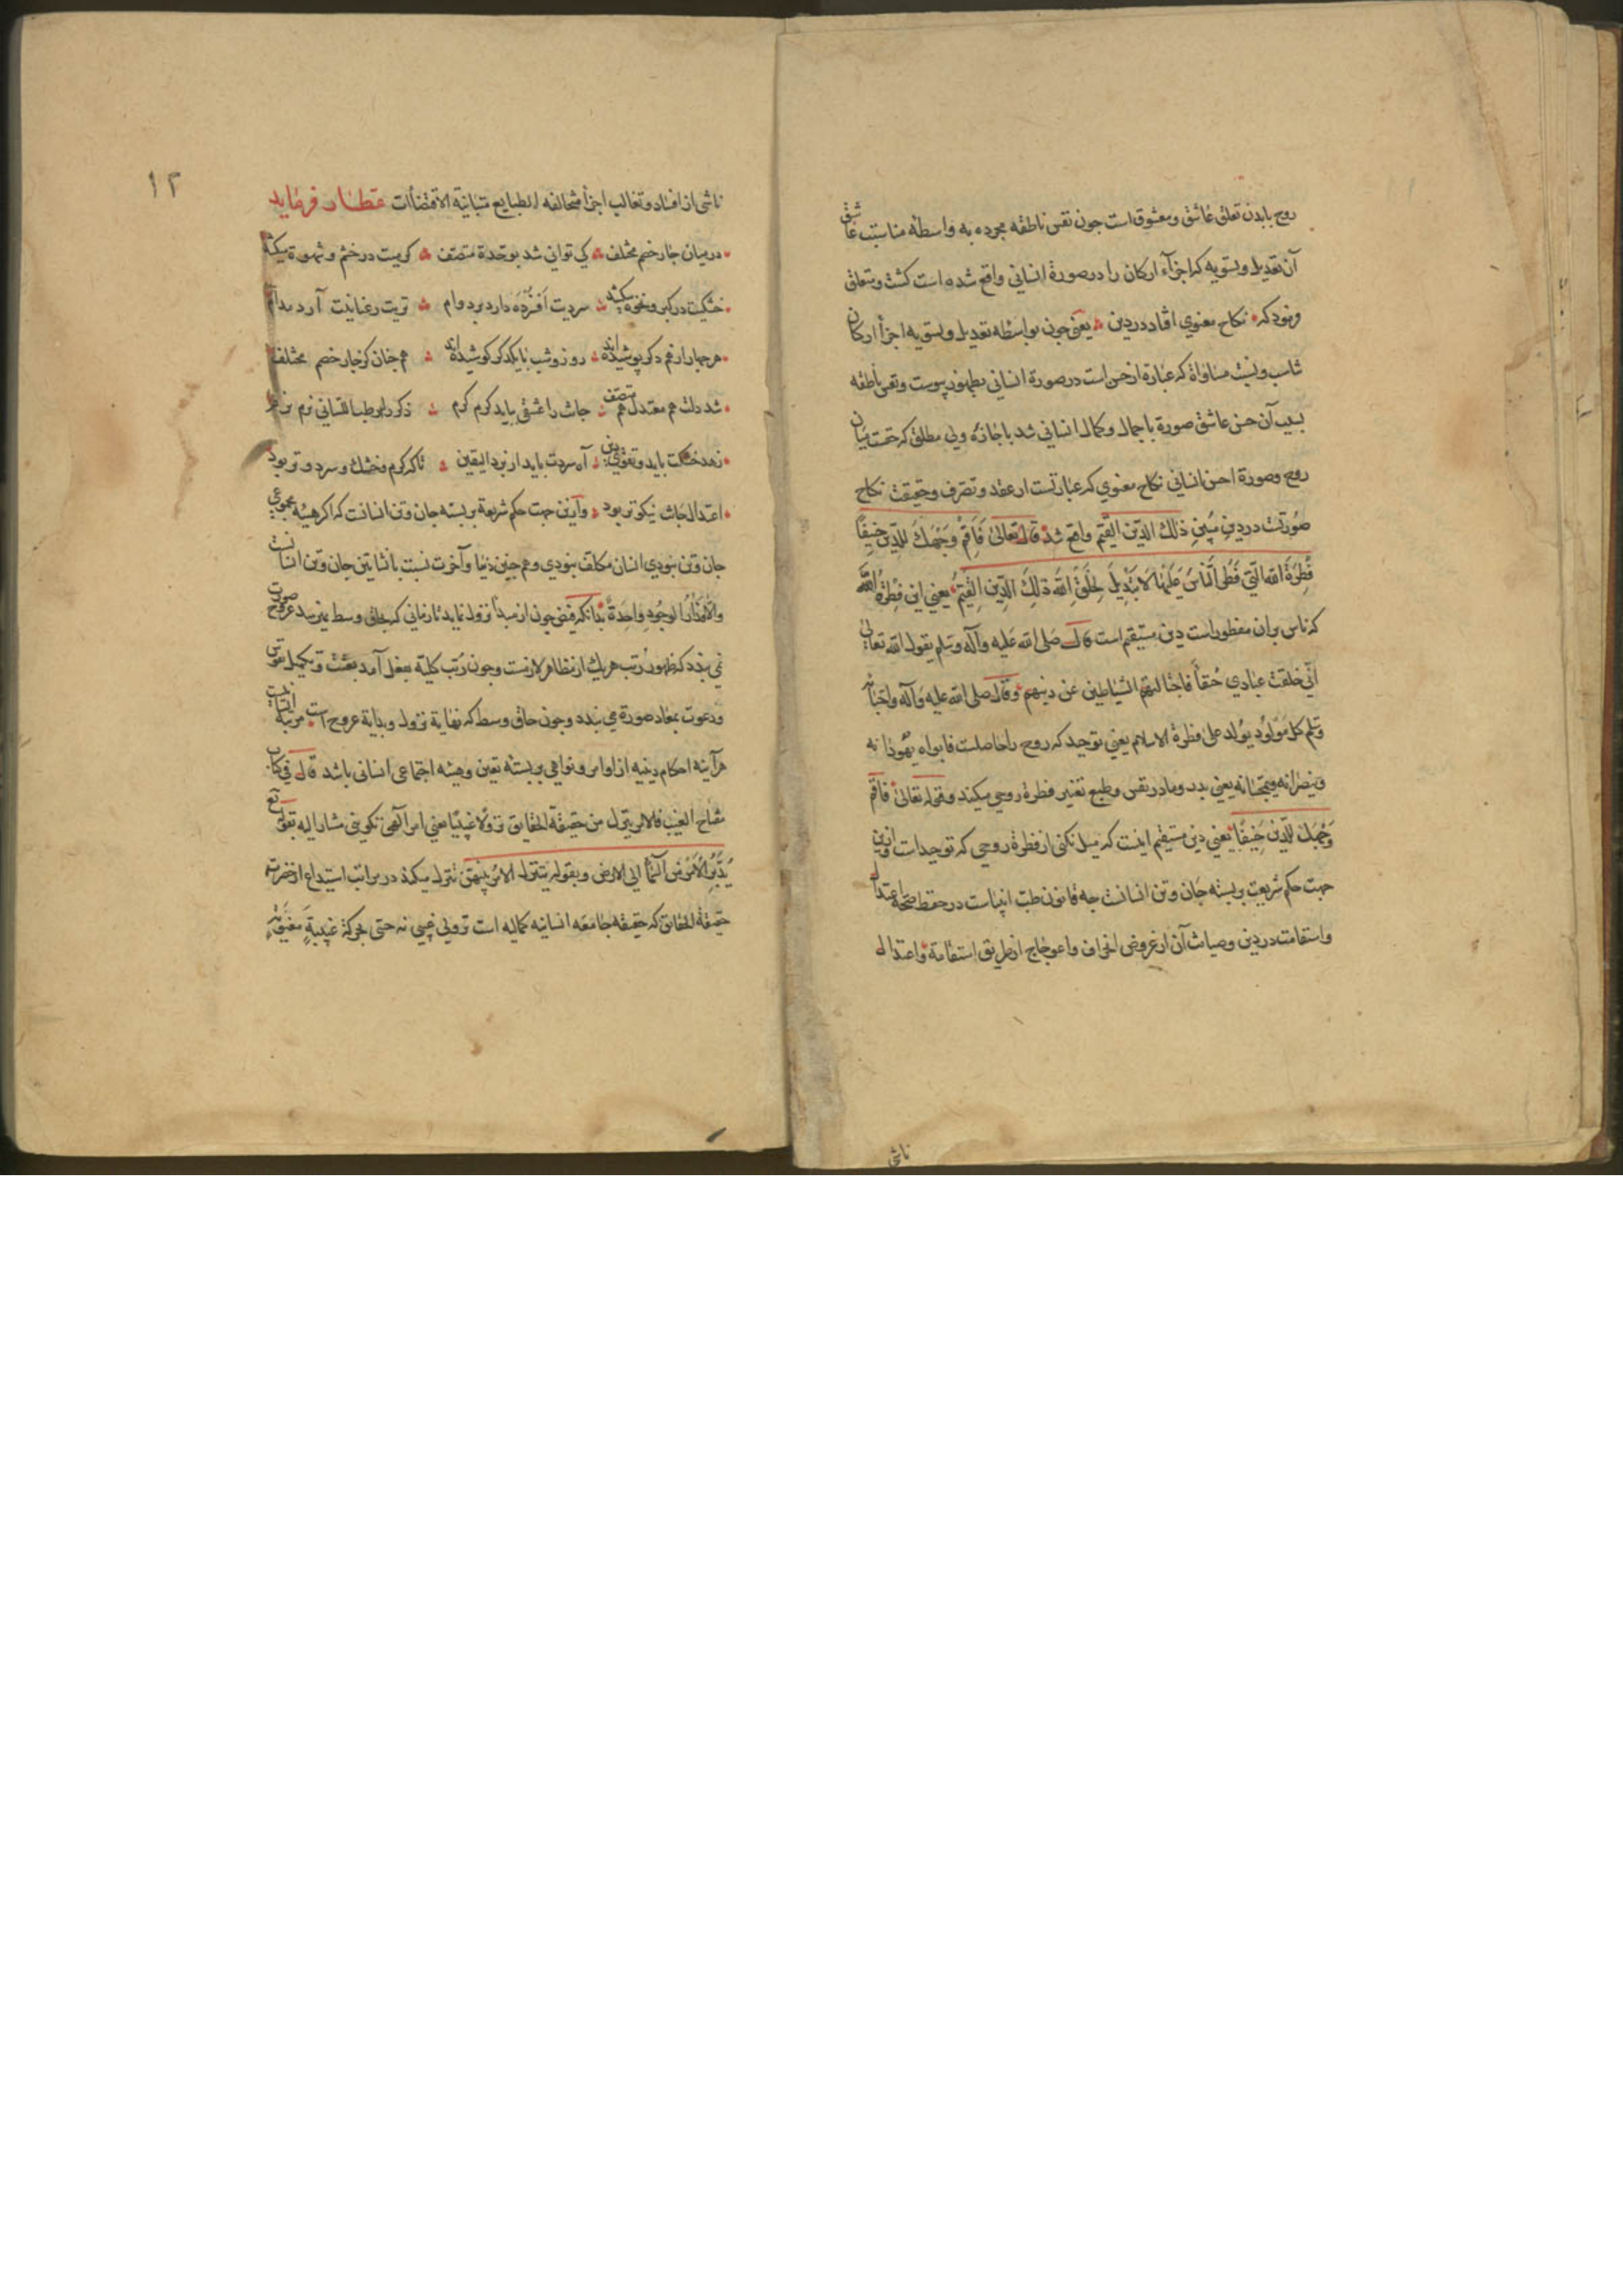 روح با بدن تعلق عاشق و معشوق است جون نفس ناطقه مجرده به واسطهٔ مناسبت عاشق
آن تعدیل و تسویه که اجزآء ارکان را در صورة انسانی واقع شده است کشت و متعلق
و بود که نکاح معنوی افتاد در دین یعنی جون بواسطه تعدیل و تسویه اجزأ ارکان
تناسب و نسبت مساواة که عبارة از حسن است در صورة انسانی بظهور پیوست و نفس ناطقه
بسبب آن حسن عاشق صورة با جمال و کمال انسانی شد باجازه ولی مطلق که حقست میان
روح و صورة احسن انسانی نکاح معنوی که عبارتست از عقد و تصرف و حقیقت نکاح
صورتست در دین مبین ذلك الدین القیم واقع شد قال تعالی فَاَقِمْ وَجْهَكَ لِلدِّینِ حَنِیفًا
فِطْرَةَ الله الَّتِی فَطَرَ النَّاسَ عَلَیْهَا لَا تَبْدِیلَ لِخَلْقِ اللهِ ذَلِكَ الدِّینُ الْقَیِّمُ یعنی این فِطْرَةُ اللهِ
که ناس بران مفطوراست دین مستقیم است قال صلی الله علیه وآله وسلم یقول الله تعالی
انّی خلقت عبادی حنفاً فاجتالتهم الشیاطین عن دینهم وقال صلی الله علیه وآله واصحابه
وسلم کل مولود یولد علی فطرة الاسلام یعنی توحید که روح را حاصلست فابواه یهودانه
وینصرانه ویمجسانه یعنی بدر و مادر نفس و طبع تغییر فطرة روحی میکند وقوله تعالی فاقم
وَجْهَكَ لِلدِّینِ حَنِیفًا یعنی دین مستقیم اینست که میل نکنی از فطرة روحی که توحید است و ازین
جهت حکم شریعت بر بسته جان و تن انسانست جه قانون طب انبیاست در حفظ صحة اعتدال
واستقامت در دین و صیانت آن از عروض انحراف و اعوجاج از طریق استقامة و اعتدال
ناشی
١٢
ناشی از افساد و تغالب اجزأ متخالفه الطبایع متباینة الاقتضاآت عطار فرماید
درمیان جار خصم مختلف کی توانی شد بوحدة متصف کرمیت در خشم و شهوة میکشد
خشکیت در کبر و نخوة میکشد سردیت افسرده دارد بر دوام تریت رعنایت آرد مدام
هر جهار از هم دکر پوشیده اند روز و شب با یکدکر کوشیده اند هم جنان کز جار خصم مختلف
شد دلت هم معتدل هم متصف جانت را عشقی باید کرم کرم ذکر را رطب اللسانی نرم نرم
زهد خشکت باید و تقوی دین آه سردت باید از برد الیقین تاکه کرم و خشك و سرد و تر بود
اعتدال جانت نیکوتر بود وازین جهت حکم شریعة بر بسته جان و تن انسانست که اکر هیئه مجموعی
جان و تن نبودی انسان مکلف نبودی و هم جنین دنیا و آخرت نسبت با نشأتین جان و تن انسانست
والّا مدار الوجود واحدة بدانکه فیض جون از مبدأ نزول نماید تا زمانی که بحاق وسط نمیرسد عروج صورت
نمی بندد که ظهور رتب هریك از مظاهر لازمست وجون رتب کلیة بفعل آمد بعثت و تکمیل نفوس
ودعوت بمعاد صورة می بندد و جون حاق وسط که نهایة نزول و بدایة عروج است مرتبه انسانیت
هرآینه احکام دینیه از اوامر و نواهی بر بسته تعین و هیئه اجتماعی انسانی باشد قال فی کتاب
مفتاح الغیب فالامر یتنزل من حقیقة الحقایق نزولًا غیبیًا یعنی امر الهی تکوینی مشار الیه بقوله تع
یُدَبِّرُ الْاَمْرَ مِنَ السَّمَآءِ الی الارض وبقوله یتنزل الامر بینهن تنزل میکند در مراتب استیداع از حضرت
حقیقة الحقائق که حقیقه جامعه انسانیه کمالیه است نزولی غیبی نه حسی بحرکة غیبیة معنویة